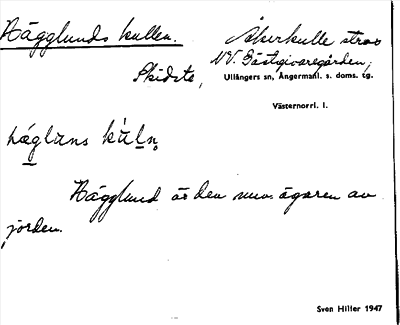 Hägglunds kullen.
Åkerkulle strax
NV. Gästgivaregården,
Skidste,
Ullångers sn, Ångermanl. s. doms. tg.
Västernorrl. l.
Hägglund är den nuv. ägaren av
jorden.
Sven Hiller 1947